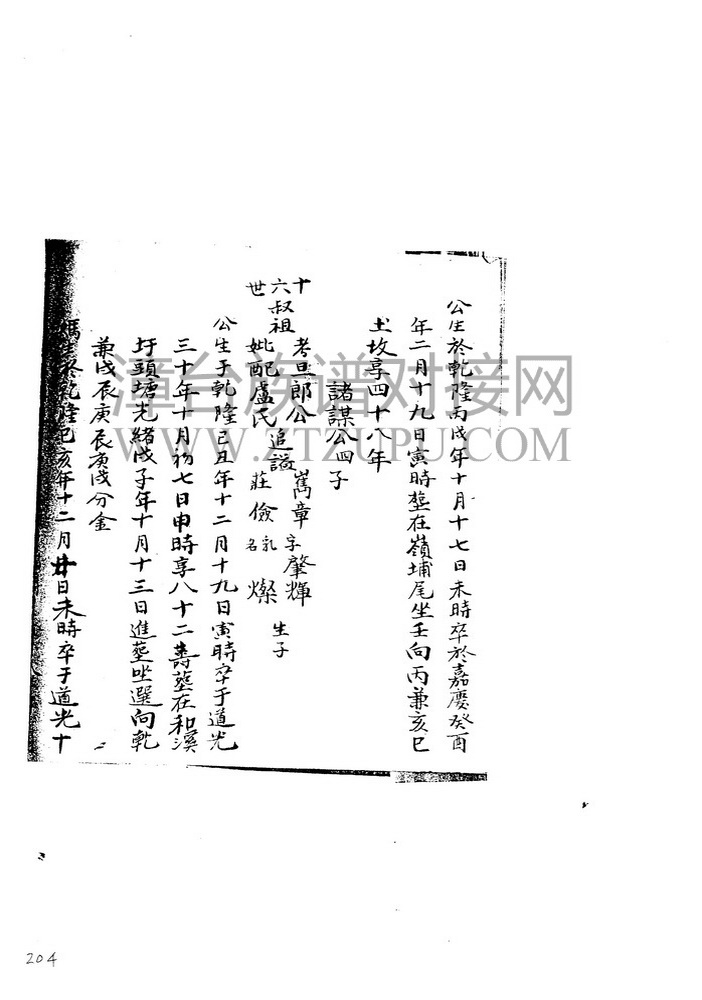 公生於乾隆丙戌年十月十七日未時卒於嘉慶癸酉
年二月十九日寅時塟在嶺埔尾坐壬向丙兼亥巳
土坟享四十八年
諸謀公四子
十六世
叔祖
考旦郎公
妣配盧氏
追謚
雋章字肇輝
莊儉乳名燦
生子
公生于乾隆己丑年十二月十九日寅時卒于道光
三十年十月初七日申時享八十二壽塟在和溪
圩頭塘光緒戊子年十月十三日進塟坐選向乾
兼戌辰庚辰庚戌分金
媽生於乾隆己亥年十二月廿日未時卒于道光十
漳台族谱对接网
WWW.ZTZUPU.COM
204